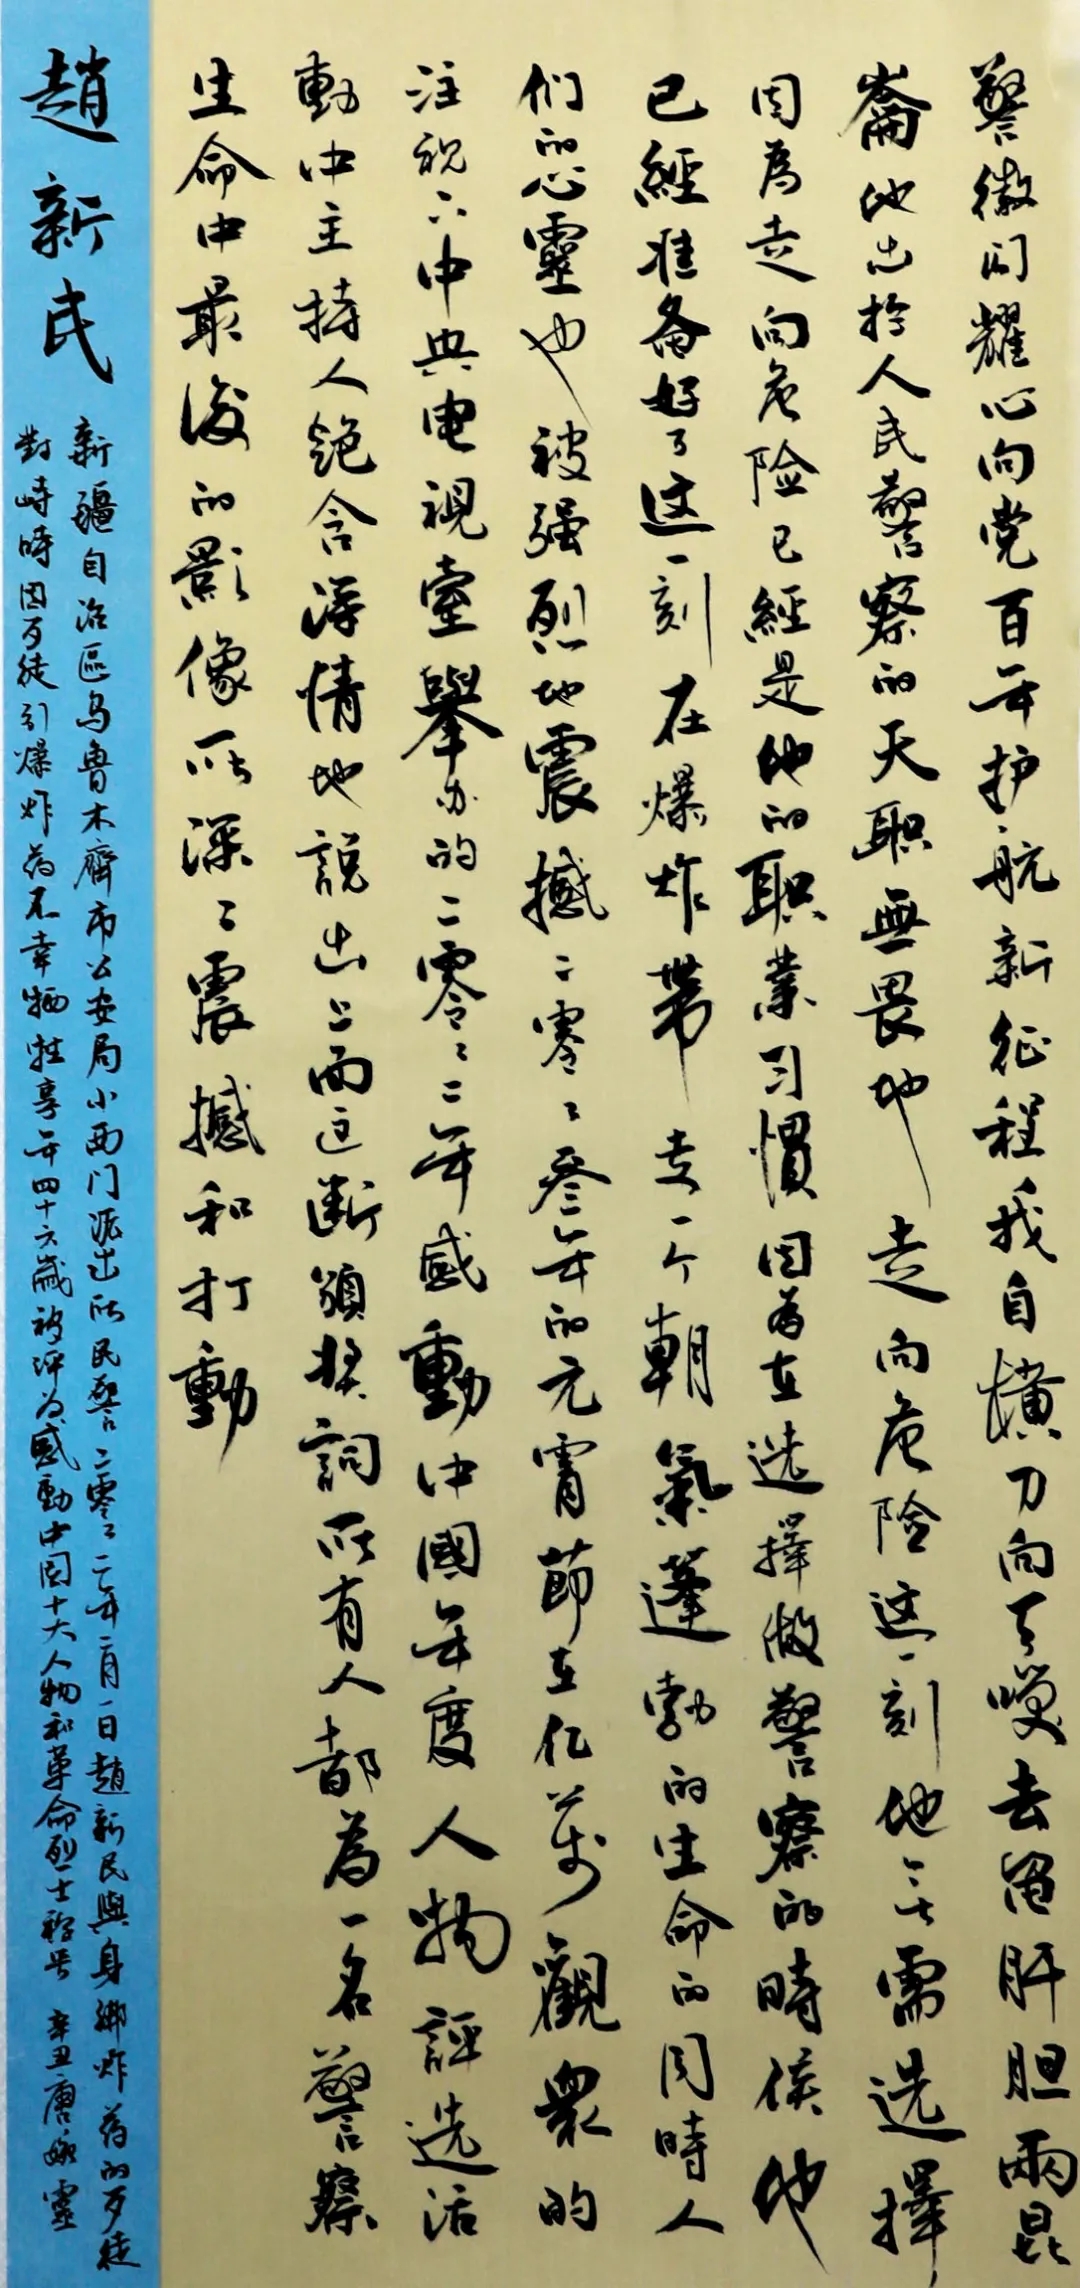 警徽闪耀心向党百年护航新征程我自横刀向天笑去留肝胆兩昆
崙他出於人民警察的天职無畏地走向危险这一刻他無需选擇
因為走向危险已經是他的职業习慣因為在选擇做警察的時候他
已經准备好了这一刻在爆炸帶走一个朝氣蓬勃的生命的同時人
们的心靈也被强烈地震撼二零二叁年的元霄節在亿萬觀衆的
注視下中央电視臺舉办的二零二二年感動中國年度人物評选活
動中主持人飽含深情地說出上面这断頒奖詞所有人都為一名警察
生命中最後的影像所深深震撼和打動
趙新民
新疆自治區乌鲁木齊市公安局小西门派出所民警二零二二年二月一日趙新民與身绑炸药的歹徒
對峙時因歹徒引爆炸药不幸牺牲享年四十六歲被评为感動中国十大人物和革命烈士称号 辛丑唐 靈